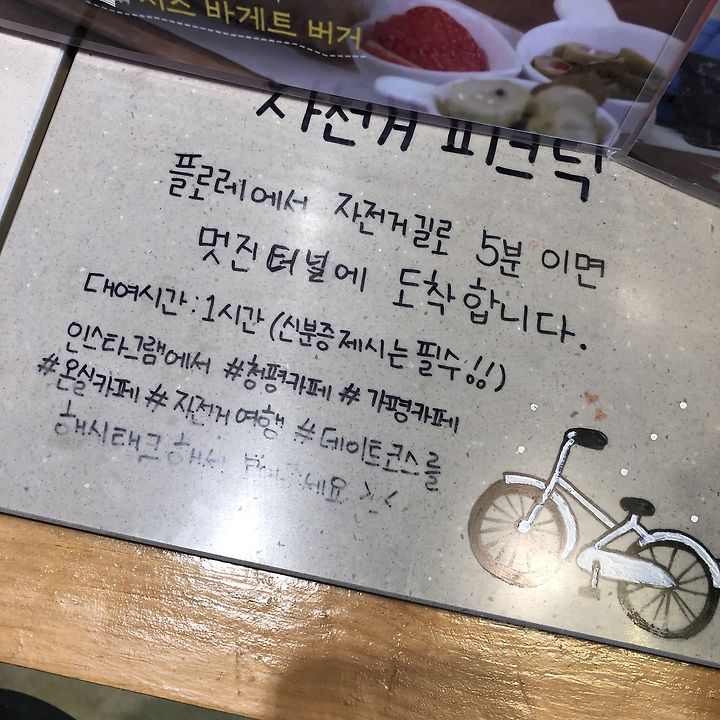 치즈 바게트 버거
자전거 피크닉
플로레에서 자전거길로 5분 이면
멋진 터널에 도착합니다.
대여시간 : 1시간 (신분증 제시는 필수!!)
인스타그램에서 #청평카페 # 가평카페
#온실카페 # 자전거 여행 # 데이트코스를
해시태그 해서 세요 >_<